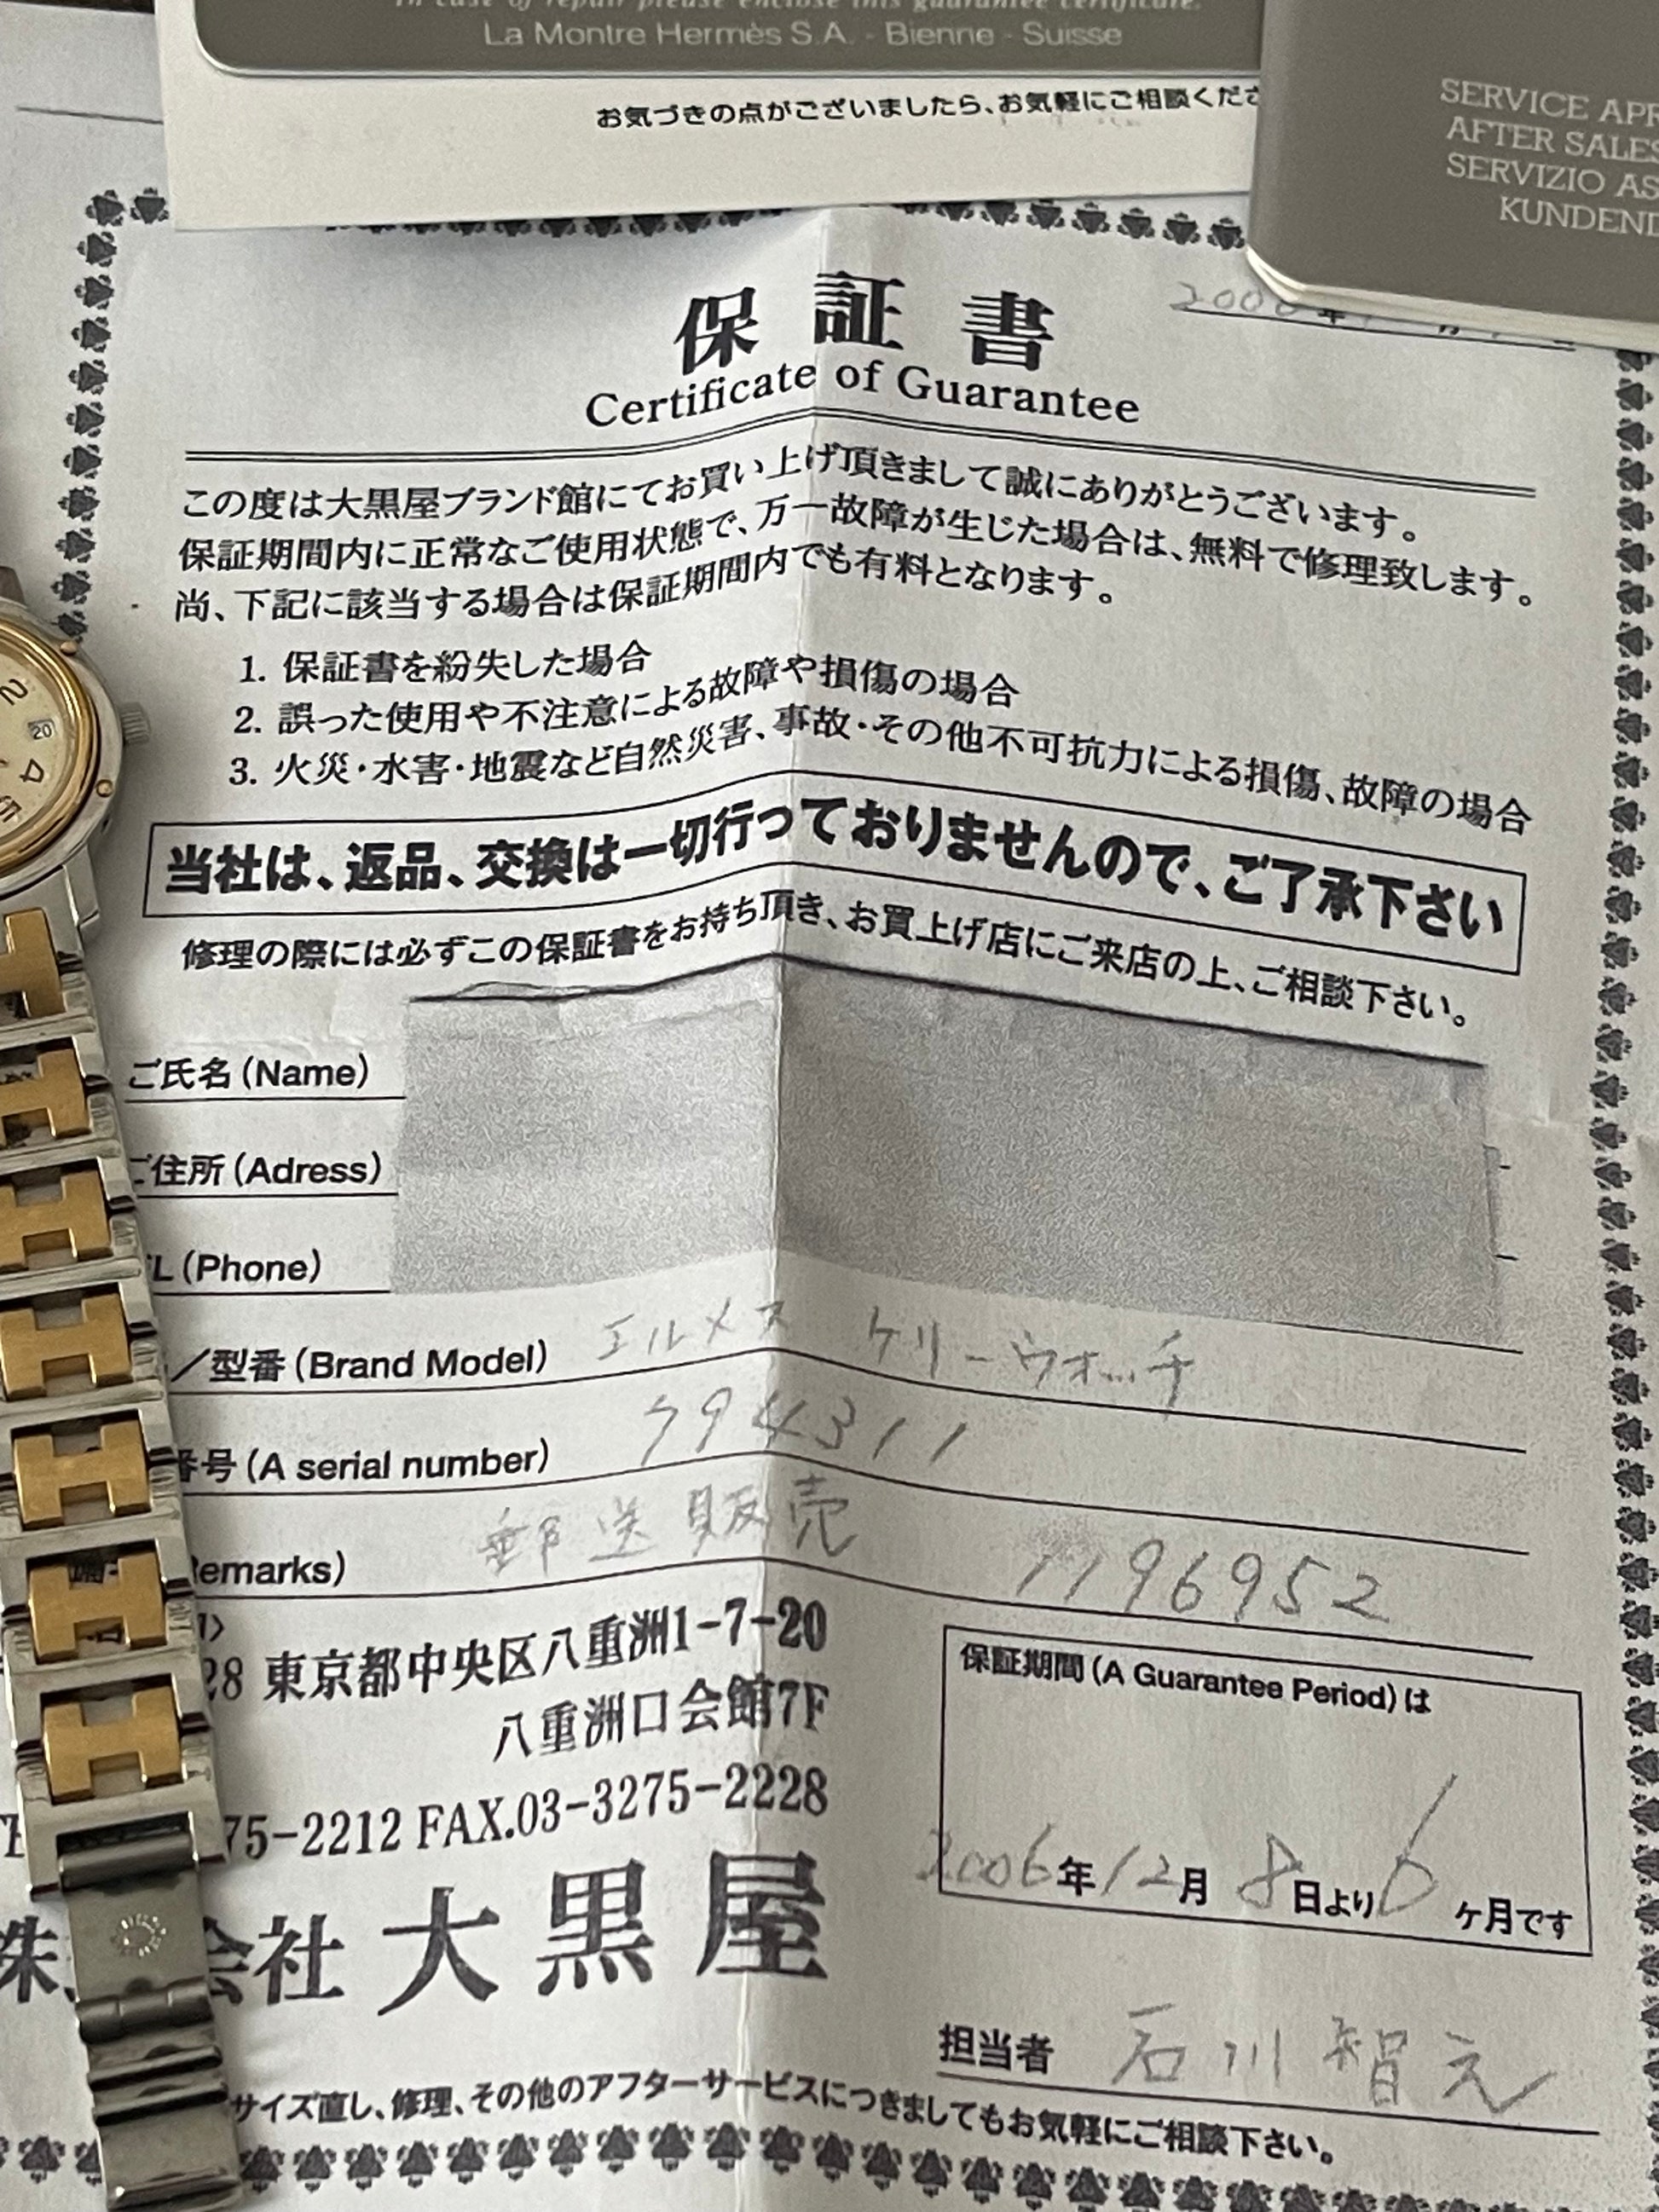 In case of repair please enclose this guarantee certificate.
La Montre Hermès S.A. - Bienne - Suisse
お気づきの点がございましたら、お気軽にご相談くださ
SERVICE APR
AFTER SALES
SERVIZIO AS
KUNDEND
保証書
Certificate of Guarantee
この度は大黒屋ブランド館にてお買い上げ頂きまして誠にありがとうございます。
保証期間内に正常なご使用状態で、万一故障が生じた場合は、無料で修理致します。
尚、下記に該当する場合は保証期間内でも有料となります。
1. 保証書を紛失した場合
2. 誤った使用や不注意による故障や損傷の場合
3. 火災・水害・地震など自然災害、事故・その他不可抗力による損傷、故障の場合
当社は、返品、交換は一切行っておりませんので、ご了承下さい
修理の際には必ずこの保証書をお持ち頂き、お買上げ店にご来店の上、ご相談下さい。
ご氏名(Name)
ご住所(Adress)
L(Phone)
／型番(Brand Model) エルメス ケリーウォッチ
番号(A serial number) 794311
emarks) 郵送販売 1196952
28 東京都中央区八重洲1-7-20
八重洲口会館7F
75-2212 FAX.03-3275-2228
株 会社 大黒屋
保証期間(A Guarantee Period)は
2006年12月8日より6ヶ月です
担当者 石川智之
サイズ直し、修理、その他のアフターサービスにつきましてもお気軽にご相談下さい。
2
20
4